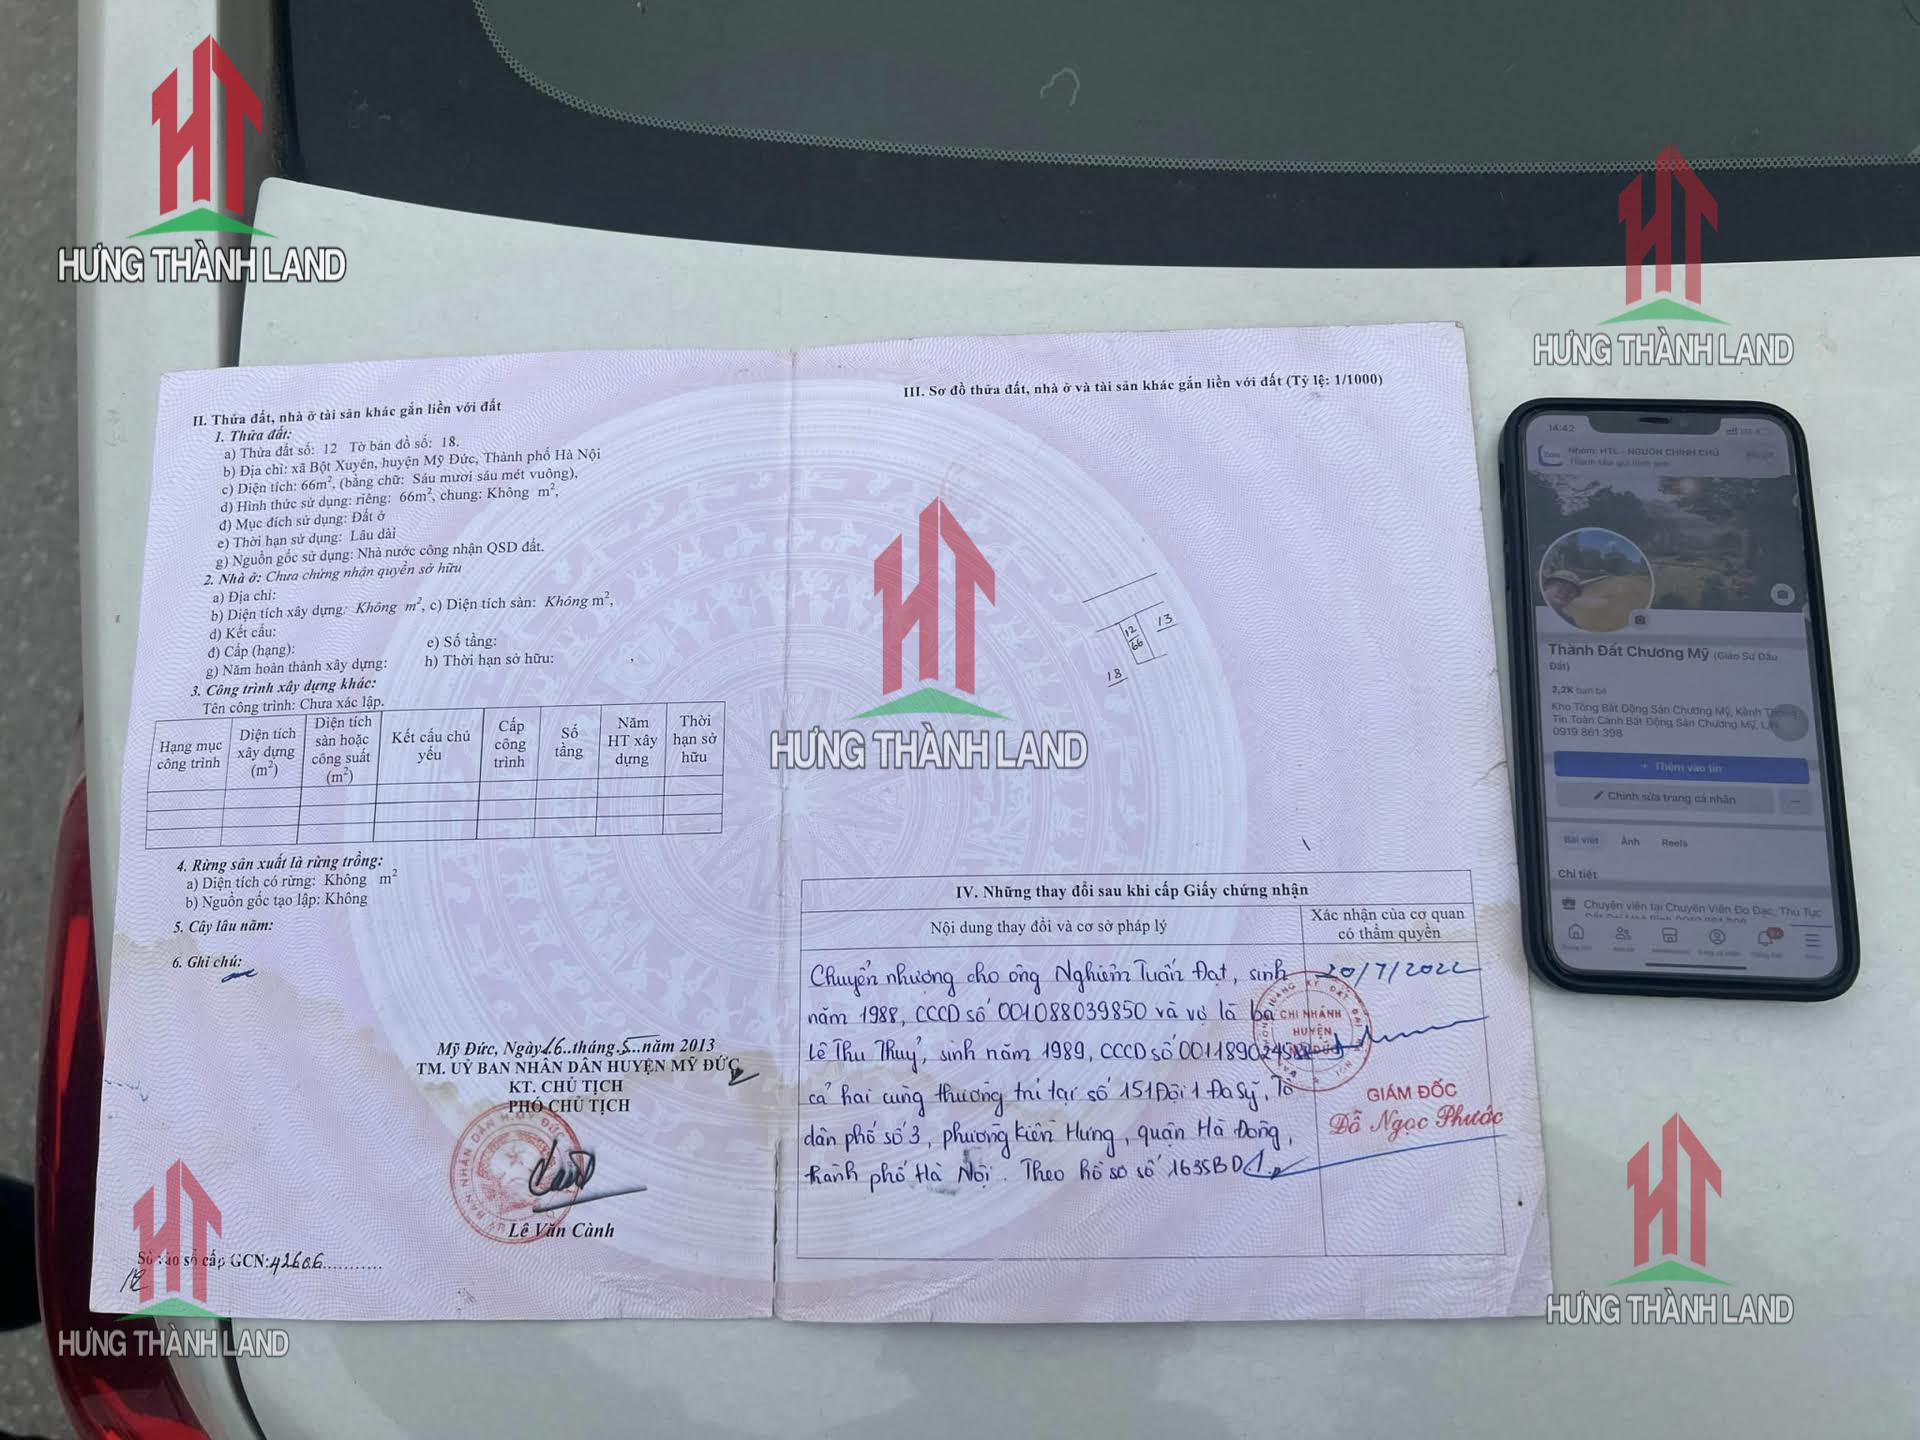 HƯNG THÀNH LAND
HƯNG THÀNH LAND
II. Thửa đất, nhà ở tài sản khác gắn liền với đất
1. Thửa đất:
a) Thửa đất số: 12 Tờ bản đồ số: 18.
b) Địa chỉ: xã Bột Xuyên, huyện Mỹ Đức, Thành phố Hà Nội
c) Diện tích: 66m², (bằng chữ: Sáu mươi sáu mét vuông),
d) Hình thức sử dụng: riêng: 66m², chung: Không m²,
đ) Mục đích sử dụng: Đất ở
e) Thời hạn sử dụng: Lâu dài
g) Nguồn gốc sử dụng: Nhà nước công nhận QSD đất.
2. Nhà ở: Chưa chứng nhận quyền sở hữu
a) Địa chỉ:
b) Diện tích xây dựng: Không m², c) Diện tích sàn: Không m²,
d) Kết cấu:
đ) Cấp (hạng): e) Số tầng:
g) Năm hoàn thành xây dựng: h) Thời hạn sở hữu:
3. Công trình xây dựng khác:
Tên công trình: Chưa xác lập.
Hạng mục công trình
Diện tích xây dựng (m²)
Diện tích sàn hoặc công suất (m²)
Kết cấu chủ yếu
Cấp công trình
Số tầng
Năm HT xây dựng
Thời hạn sở hữu
4. Rừng sản xuất là rừng trồng:
a) Diện tích có rừng: Không m²
b) Nguồn gốc tạo lập: Không
5. Cây lâu năm:
6. Ghi chú:
Mỹ Đức, Ngày 16..tháng.5...năm 2013
TM. UỶ BAN NHÂN DÂN HUYỆN MỸ ĐỨC
KT. CHỦ TỊCH
PHÓ CHỦ TỊCH
Lê Văn Cảnh
Số vào sổ cấp GCN: 42606...........
III. Sơ đồ thửa đất, nhà ở và tài sản khác gắn liền với đất (Tỷ lệ: 1/1000)
12
66
13
18
HƯNG THÀNH LAND
IV. Những thay đổi sau khi cấp Giấy chứng nhận
Nội dung thay đổi và cơ sở pháp lý
Xác nhận của cơ quan có thẩm quyền
Chuyển nhượng cho ông Nghiêm Tuấn Đạt, sinh
năm 1988, CCCD số 001088039850 và vợ là bà
Lê Thu Thuỷ, sinh năm 1989, CCCD số
cả hai cùng thường trú tại số 151 Đội 1 Đa Sỹ, Tổ
dân phố số 3, phường Kiến Hưng, quận Hà Đông,
thành phố Hà Nội. Theo hồ sơ số
20/7/2022
CHI NHÁNH
HUYỆN
MỸ ĐỨC
GIÁM ĐỐC
Đỗ Ngọc Phước
14:42
Nhóm: HTL - NGUỒN CHÍNH CHỦ
Thành Đất Chương Mỹ (Giáo Sư Đấu
Đất)
2,2K bạn bè
Kho Tổng Bất Động Sản Chương Mỹ, Kênh Thông
Tin Toàn Cảnh Bất Động Sản Chương Mỹ,
0919 861 398
+ Thêm vào tin
Chỉnh sửa trang cá nhân
Bài viết Ảnh Reels
Chi tiết
Chuyên viên tại Chuyên Viên Đo Đạc, Thủ Tục
HƯNG THÀNH LAND
HƯNG THÀNH LAND